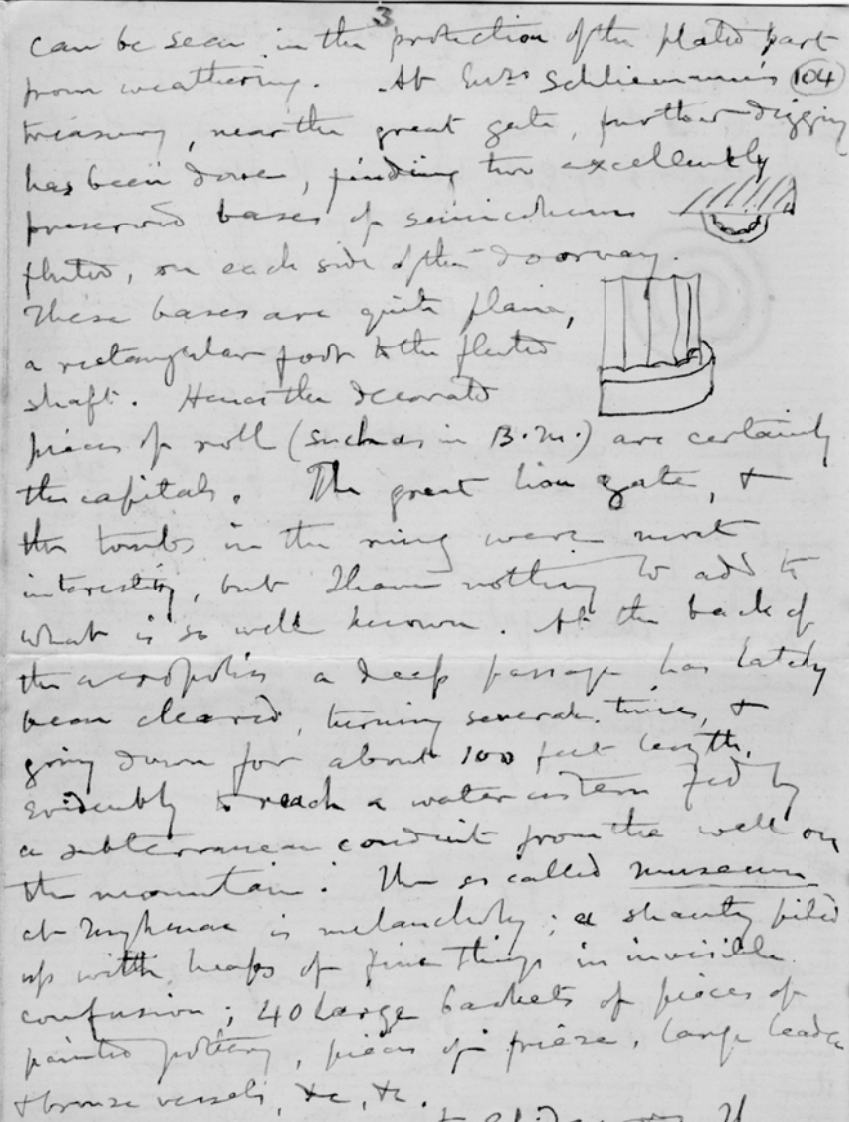 3
can be seen in the protection of the plated part
from weathering. At Mrs Schliemann's (104)
treasury, near the great gate, further digging
has been done, finding two excellently
preserved bases of semicolumns
fluted, on each side of the doorway.
These bases are quite plain,
a rectangular foot to the fluted
shaft. Hence the decorated
pieces of roll (such as in B.M.) are certainly
the capitals. The great lion gate, &
the tombs in the ring were most
interesting, but I have nothing to add to
what is so well known. At the back of
the acropolis a deep passage has lately
been cleared, turning several times, &
going down for about 100 feet length,
evidently to reach a water cistern fed by
a subterranean conduit from the well on
the mountain. The so called museum
at Mykenae is melancholy; a shanty piled
up with heaps of fine things in invisible
confusion; 40 large baskets of pieces of
painted pottery, pieces of frieze, large leaden
& bronze vessels, &c, &c.